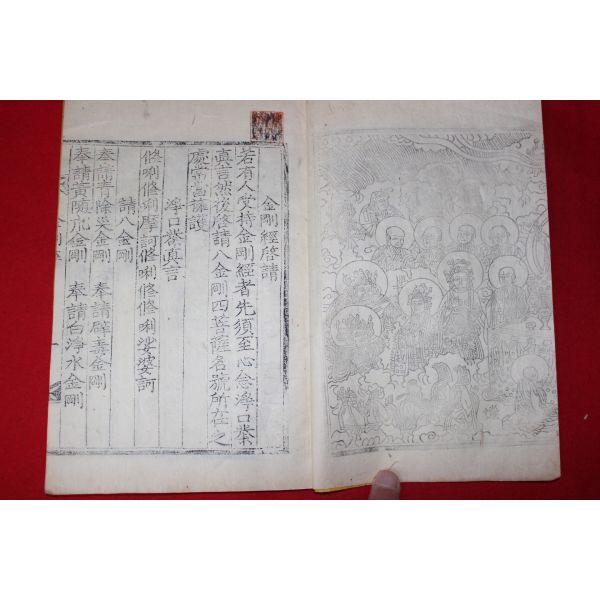 金剛經啓請
若有人受持金剛經者先須至心念淨口業
眞言然後啓請八金剛四菩薩名號所在之
處常當擁護
淨口業眞言
修唎修唎摩訶修唎修修唎娑婆訶
請八金剛
奉請青除災金剛 奉請辟毒金剛
奉請黃隨求金剛 奉請白淨水金剛